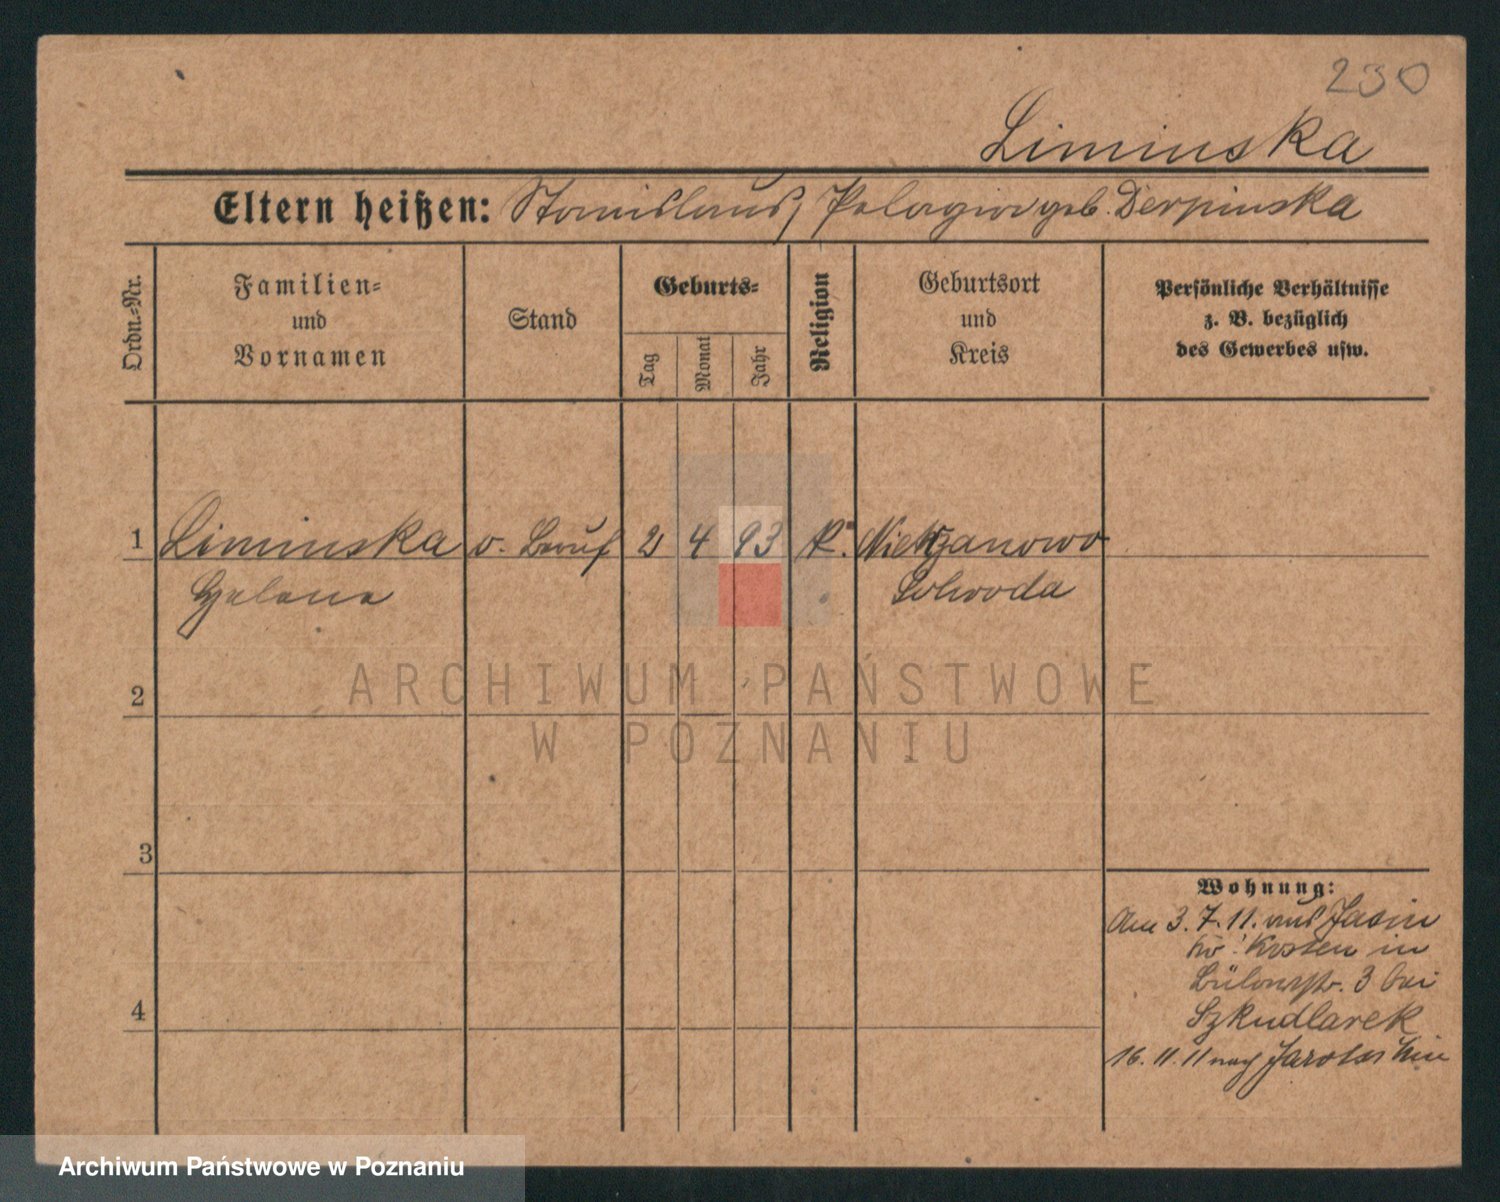 230
Liminska
Eltern heißen: Stanislaus, Pelagia geb. Derpinska
Ordn.-Nr.
Familien-
und
Vornamen
Stand
Geburts-
Tag
Monat
Jahr
Religion
Geburtsort
und
Kreis
Persönliche Verhältnisse
z. B. bezüglich
des Gewerbes usw.
1 Liminska o. Beruf 2 4 93 K. Nietrzanowo
Helena Schroda
2
3
4
Wohnung:
Am 3. 7. 11. aus Jasin
Kr. Kosten in
Bülowstr. 3 bei
Szkudlarek
16. 11. 11 nach
ARCHIWUM PAŃSTWOWE
W POZNANIU
Archiwum Państwowe w Poznaniu